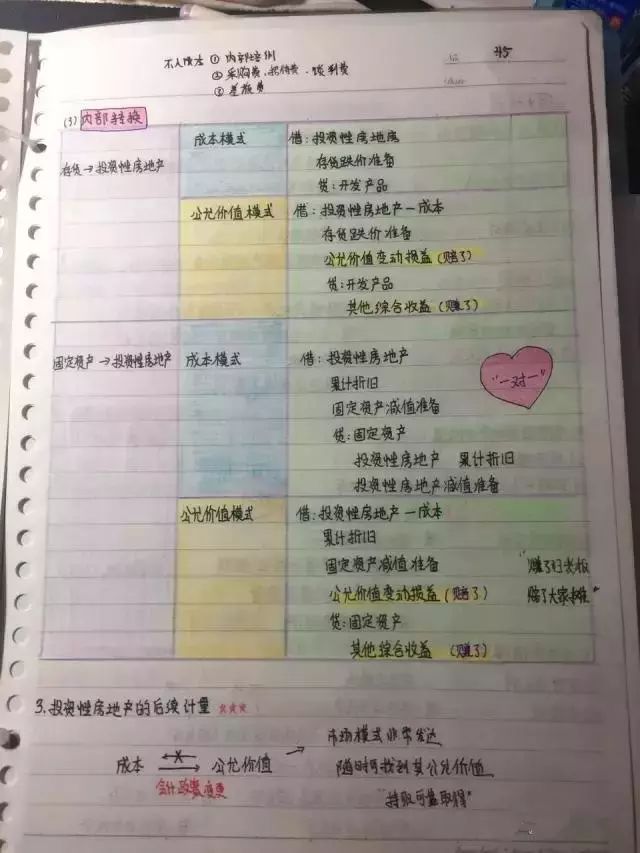 不入成本 ① 内部培训
No. 115
② 采购费、招待费、谈判费
Date
③ 差旅费
(3) 内部转换
成本模式 借:投资性房地房
存货→投资性房地产 存货跌价准备
贷:开发产品
公允价值模式 借:投资性房地产一成本
存货跌价准备
公允价值变动损益(赔了)
贷:开发产品
其他综合收益(赚了)
固定资产→投资性房地产 成本模式 借:投资性房地产
累计折旧
"一对一"
固定资产减值准备
贷:固定资产
投资性房地产 累计折旧
投资性房地产减值准备
公允价值模式 借:投资性房地产一成本
累计折旧
固定资产减值准备 "赚了归老板
公允价值变动损益(赔了) 赔了大家摊"
贷:固定资产
其他综合收益 (赚了)
3.投资性房地产的后续计量 ★★★
市场模式非常发达
成本 公允价值 随时可找到其公允价值
会计政策变更 "持续可靠取得"